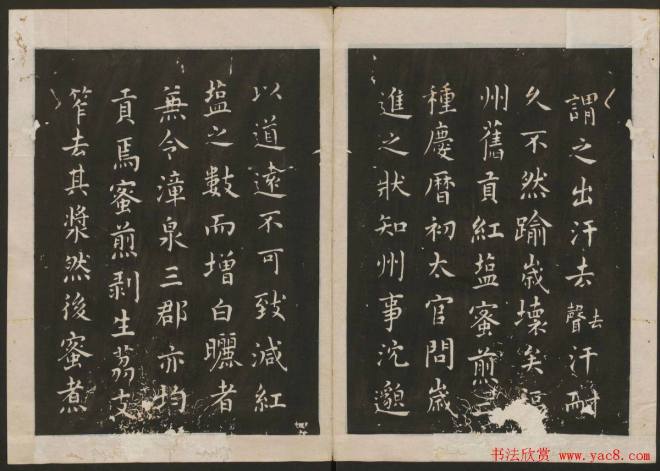 謂之出汗去聲去汗耐
久不然踰歲壞矣福
州舊貢紅塩蜜煎二
種慶曆初太官問歲
進之狀知州事沈邈
以道遠不可致減紅
塩之數而增白曬者
兼令漳泉三郡亦均
貢焉蜜煎剥生荔支
笮去其漿然後蜜煮
书法欣赏 www.yac8.com